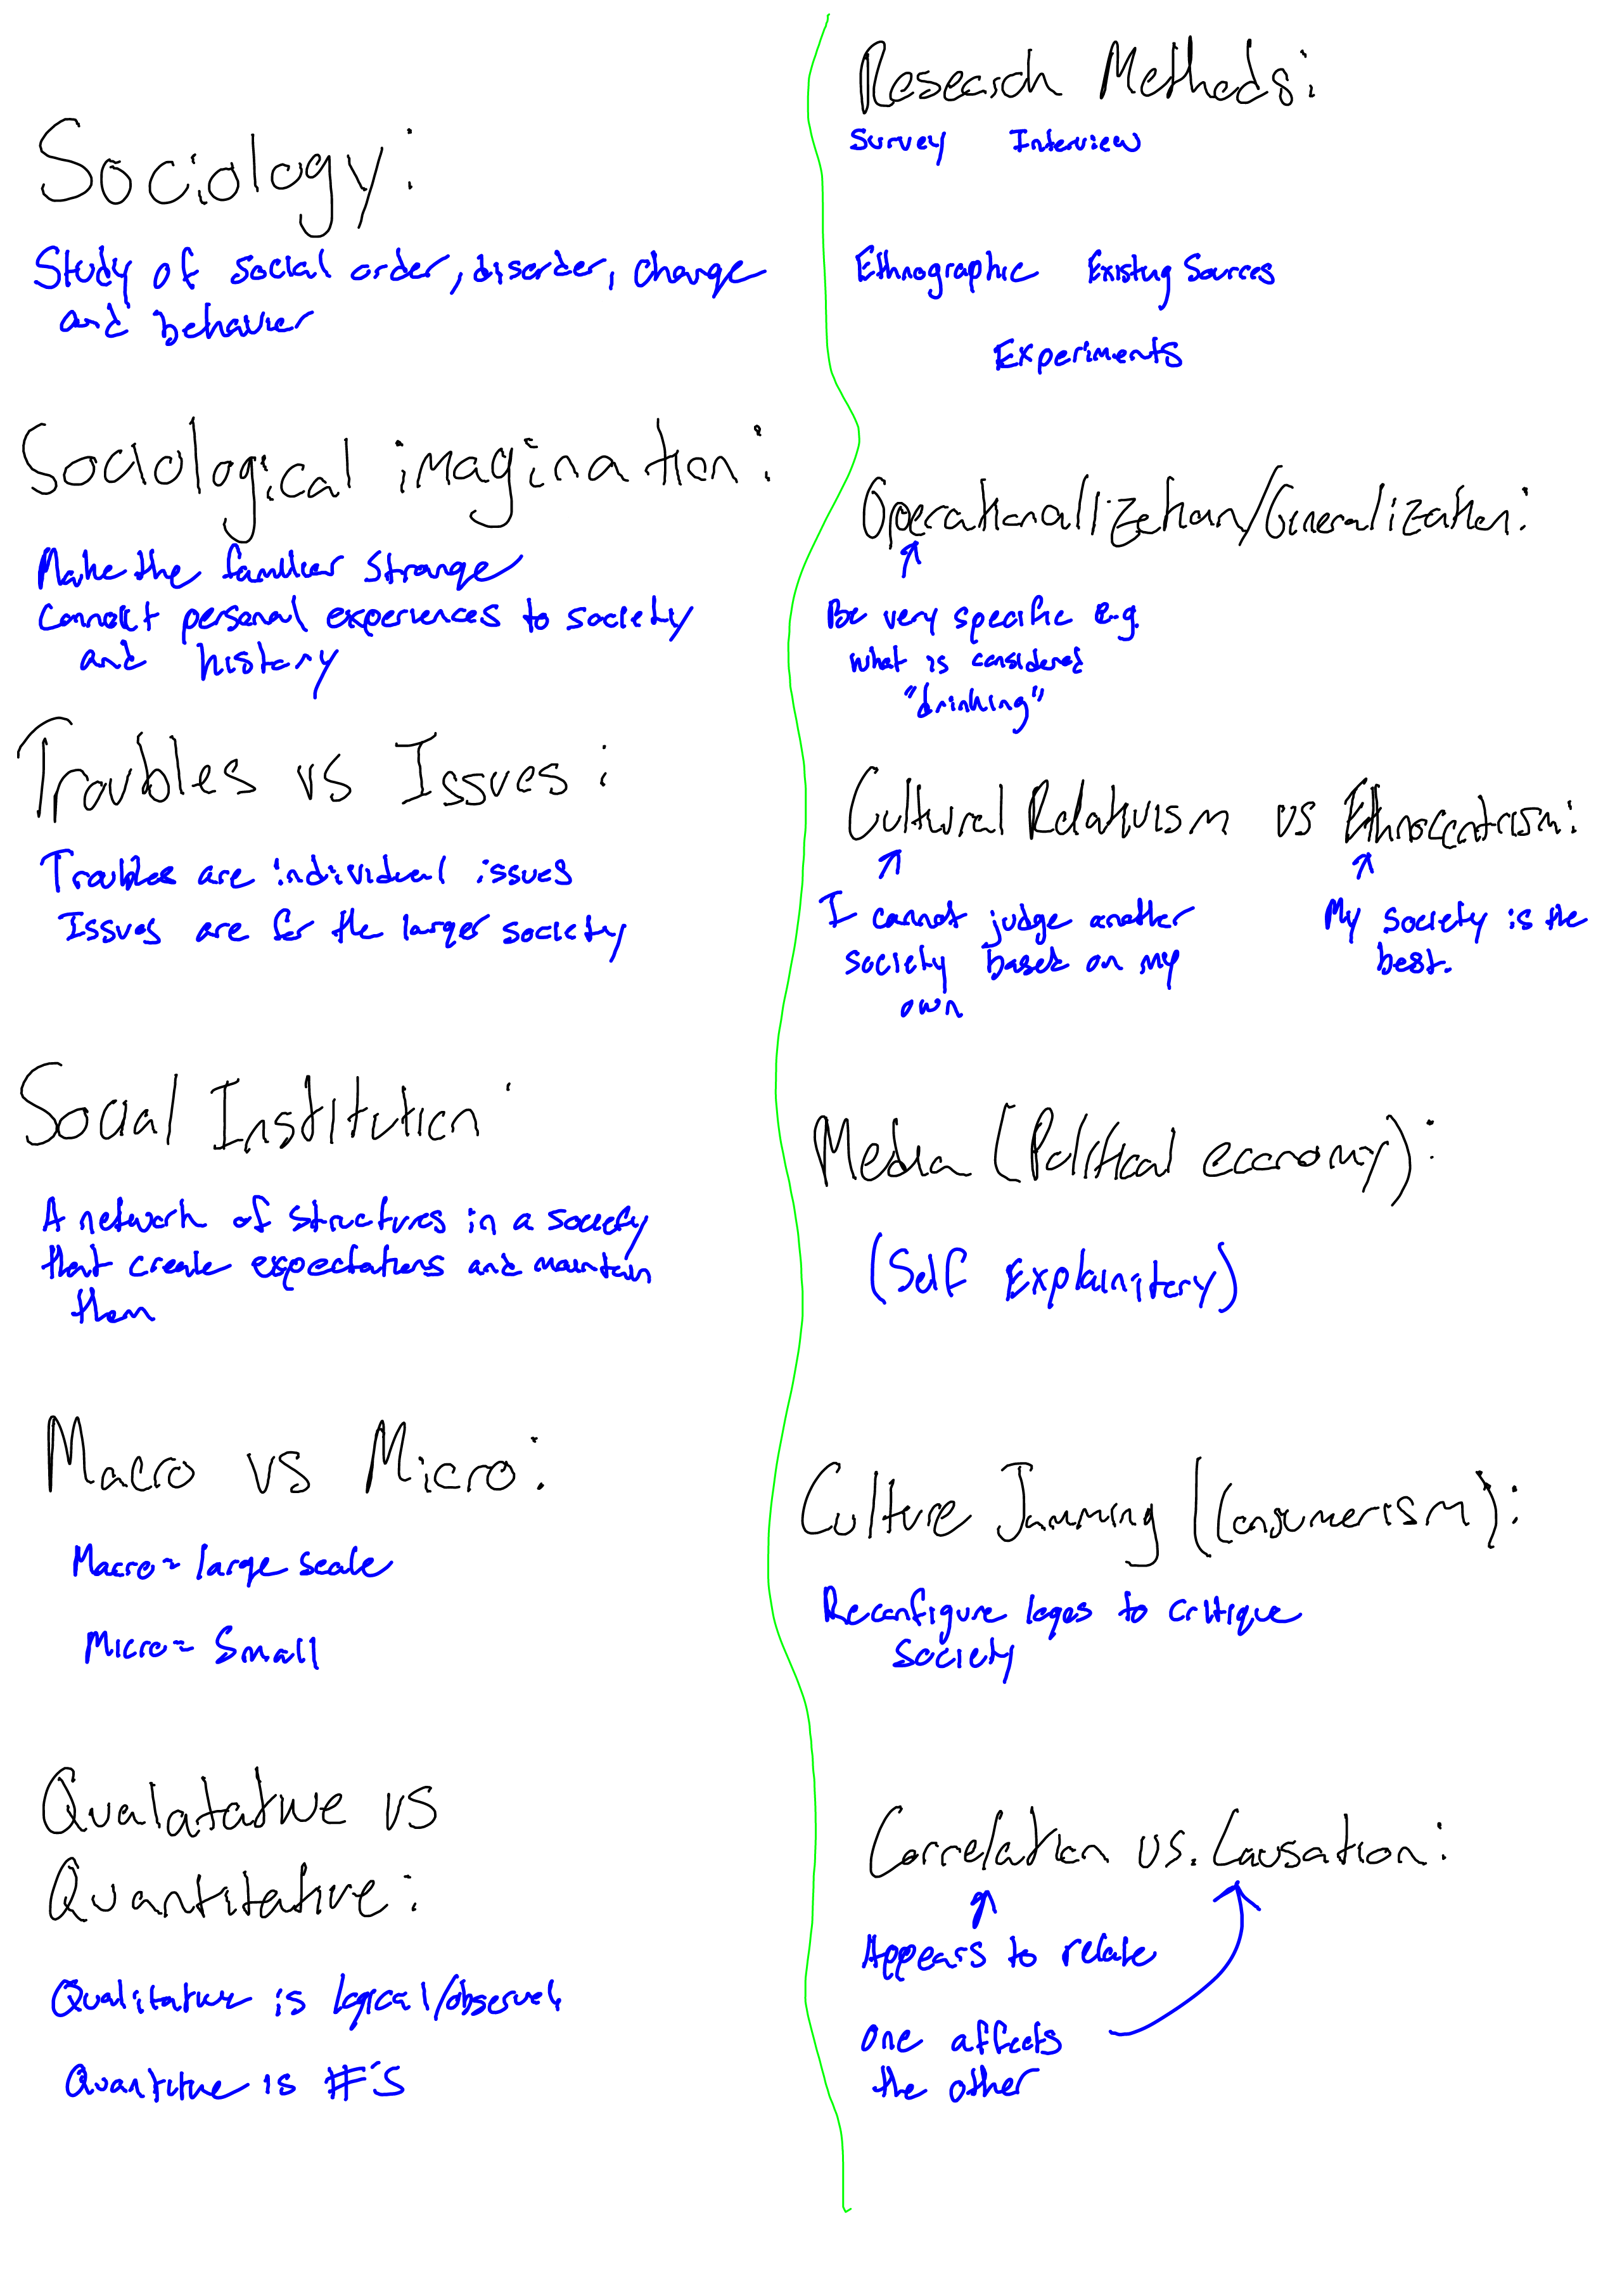 Sociology:
Study of social order, disorder, change
and behavior
Sociological imagination:
Make the familier strange
Connect personal experiences to society
and history
Troubles vs Issues:
Troubles are individual issues
Issues are for the larger society
Social Institution:
A network of structures in a society
that create expectations and maintain
them
Macro vs Micro:
Macro = large scale
Micro = Small
Qualatative vs
Quantitative:
Qualitative is logical/observed
Quantitive is #'s
Research Methods:
Survey Interview
Ethnographic Existing Sources
Experiments
Operationallization/Generalization:
Be very specific e.g.
what is considered
"drinking"
Cultural Relativism vs Ethnocentrism:
I cannot judge another
society based on my
own
My society is the
best.
Media (Political economy):
(Self Explainitory)
Culture Jamming (Consumerism):
Reconfigure logos to critique
society
Correlation vs. Causation:
Appears to relate
one affects
the other